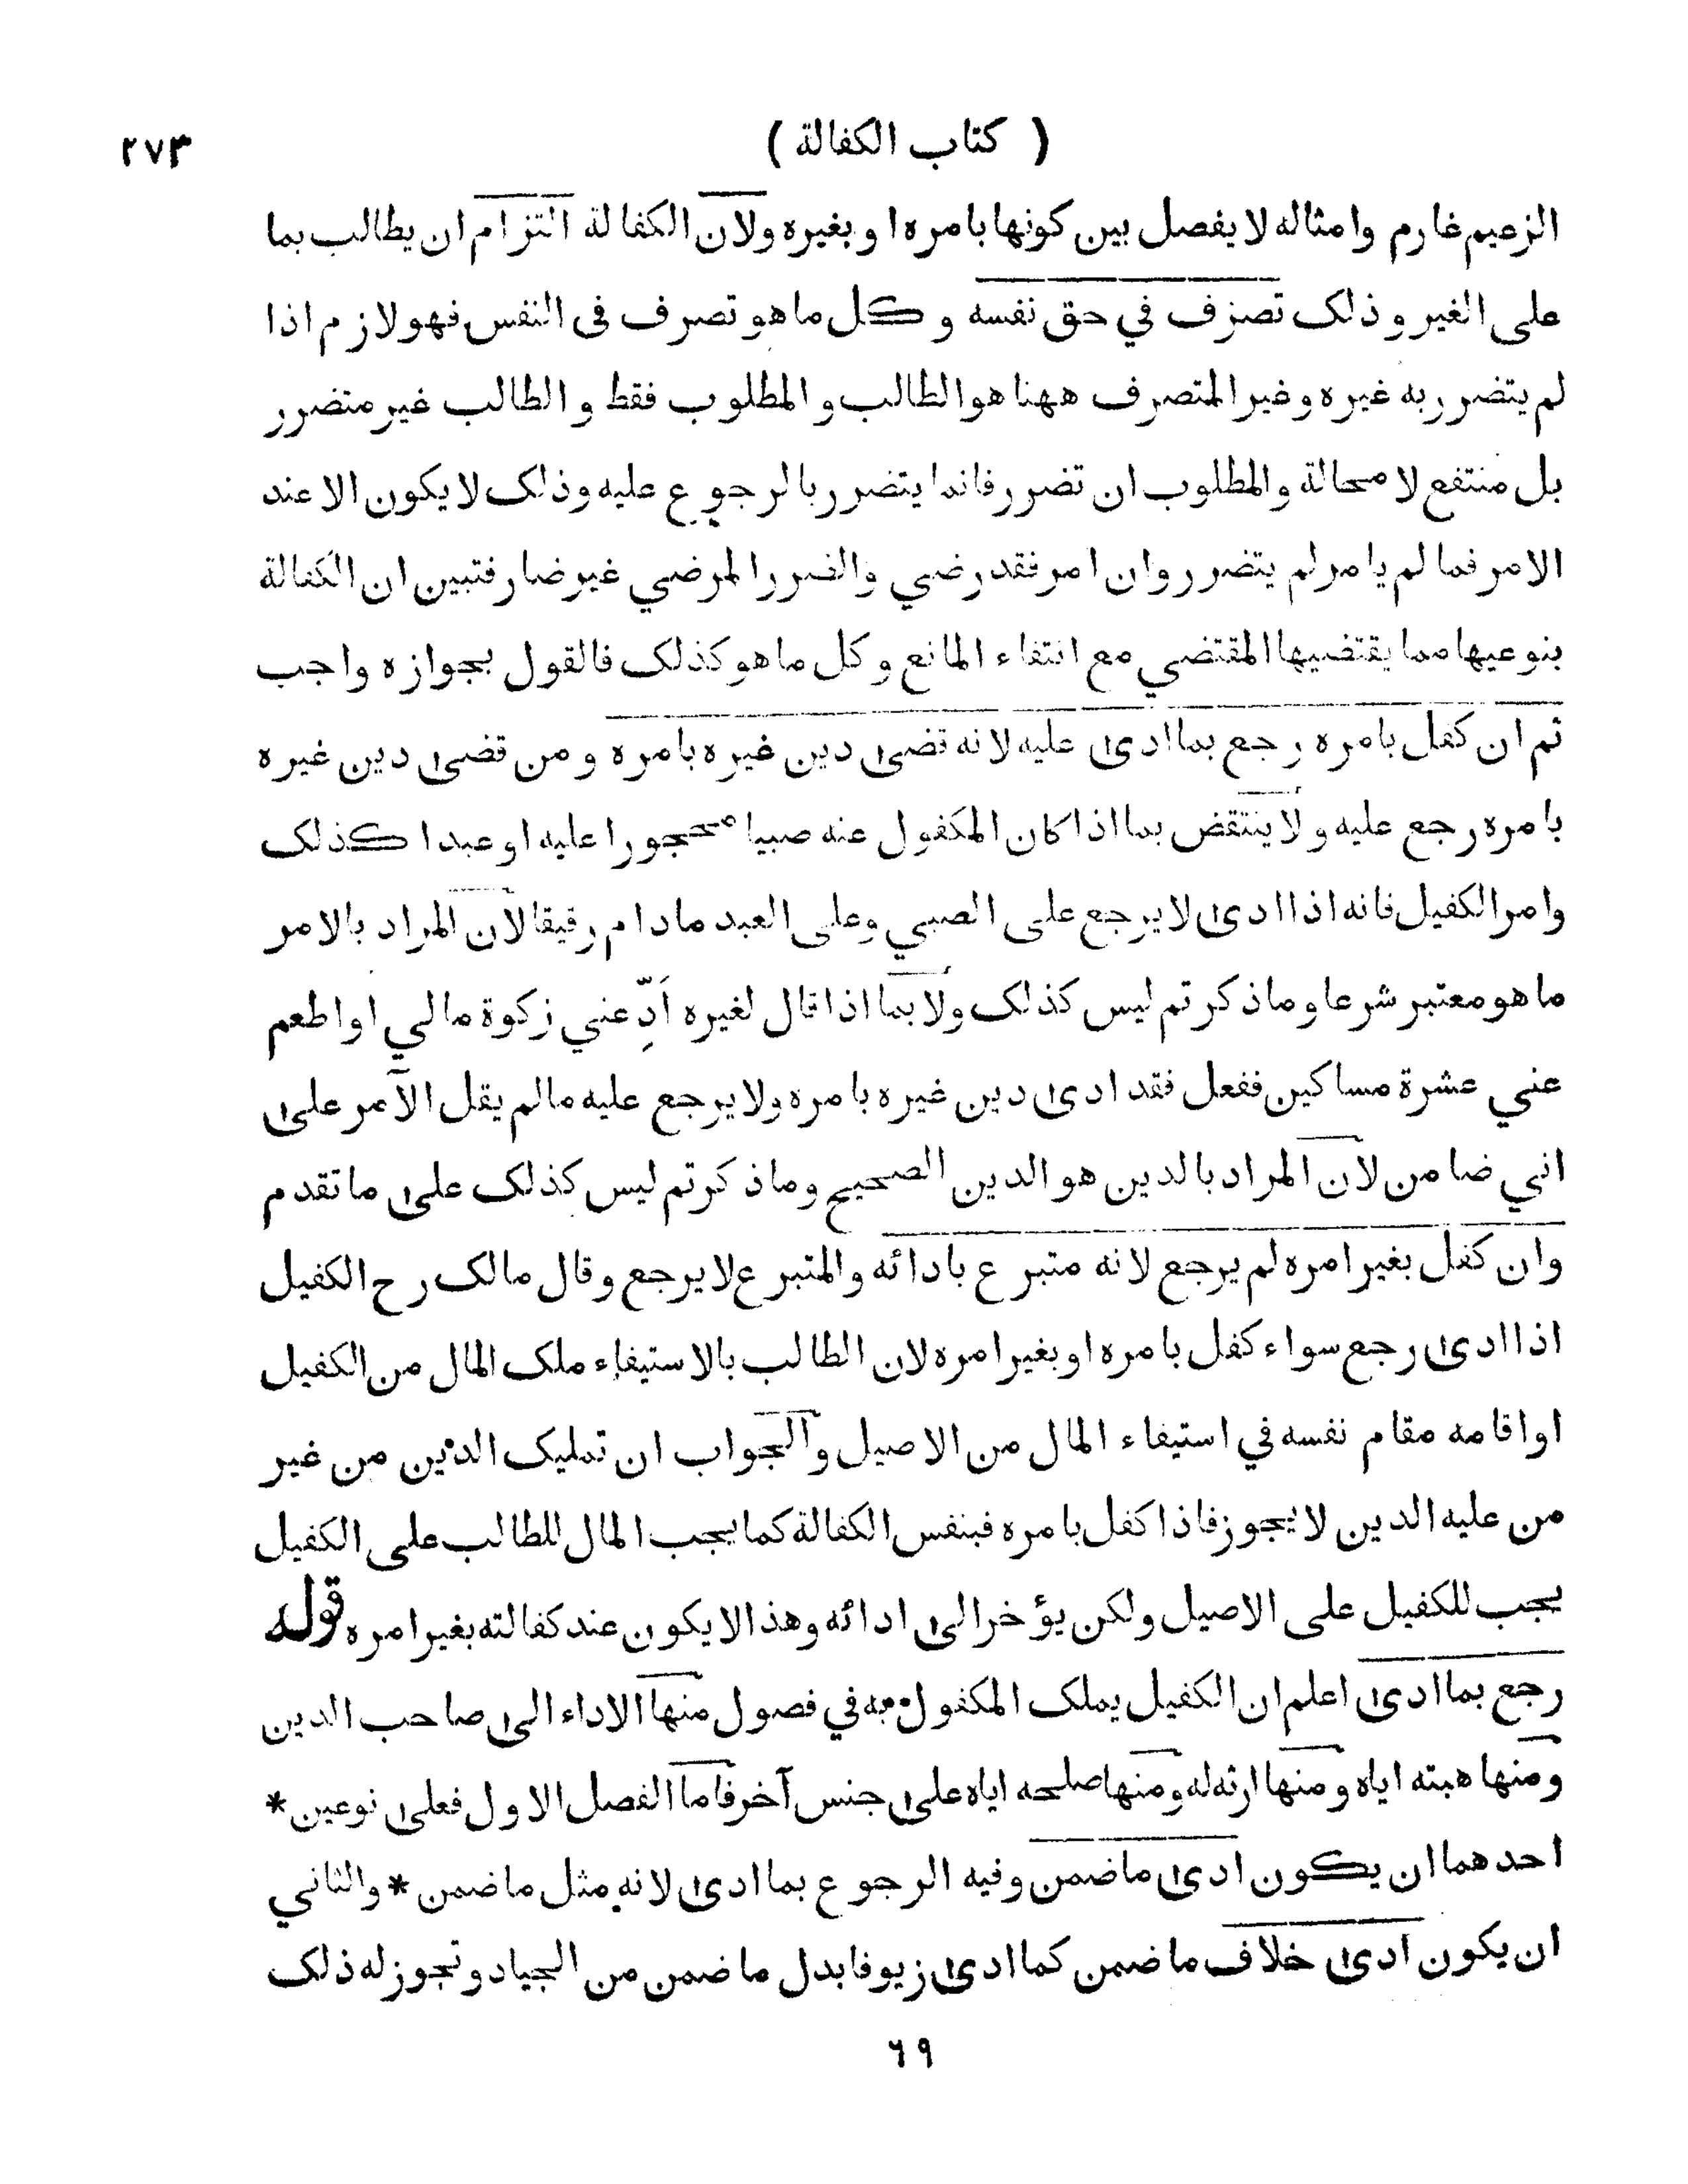 ( كتاب الكفالة ) ٢٧٣
الزعيم غارم وامثاله لا يفصل بين كونها بامره او بغيره ولان الكفالة التزام ان يطالب بما
على الغير وذلك تصرف في حق نفسه وكل ما هو تصرف فى النفس فهو لازم اذا
لم يتضرر به غيره وغير المتصرف ههنا هو الطالب والمطلوب فقط والطالب غير متضرر
بل منتفع لا محالة والمطلوب ان تضرر فانما يتضرر بالرجوع عليه وذلك لا يكون الا عند
الامر فما لم يامر لم يتضرر وان امر فقد رضي والضرر المرضي غير ضار فتبين ان الكفالة
بنوعيها مما يقتضيها المقتضي مع انتفاء المانع وكل ما هو كذلك فالقول بجوازه واجب
ثم ان كفل بامره رجع بما ادى عليه لانه قضى دين غيره بامره ومن قضى دين غيره
بامره رجع عليه ولا ينتقض بما اذا كان المكفول عنه صبيا محجورا عليه او عبدا كذلك
وامر الكفيل فانه اذا ادى لا يرجع على الصبي وعلى العبد مادام رقيقا لان المراد بالامر
ما هو معتبر شرعا وما ذكرتم ليس كذلك ولا بما اذا قال لغيره اَدِّ عني زكوة مالي او اطعم
عني عشرة مساكين ففعل فقد ادى دين غيره بامره ولا يرجع عليه مالم يقل الآمر على
اني ضامن لان المراد بالدين هو الدين الصحيح وما ذكرتم ليس كذلك على ما تقدم
وان كفل بغير امره لم يرجع لانه متبرع بادائه والمتبرع لا يرجع وقال مالك رح الكفيل
اذا ادى رجع سواء كفل بامره او بغير امره لان الطالب بالاستيفاء ملك المال من الكفيل
او اقامه مقام نفسه في استيفاء المال من الاصيل والجواب ان تمليك الدين من غير
من عليه الدين لا يجوز فاذا كفل بامره فبنفس الكفالة كما يجب المال للطالب على الكفيل
يجب للكفيل على الاصيل ولكن يؤخر الى ادائه وهذا لا يكون عند كفالته بغير امره قوله
رجع بما ادى اعلم ان الكفيل يملك المكفول به في فصول منها الاداء الى صاحب الدين
ومنها هبته اياه ومنها ارثه له ومنها صلحه اياه على جنس آخر فاما الفصل الاول فعلى نوعين *
احدهما ان يكون ادى ما ضمن وفيه الرجوع بما ادى لانه مثل ما ضمن * والثاني
ان يكون ادى خلاف ما ضمن كما ادى زيوفا بدل ما ضمن من الجياد وتجوز له ذلك
٦٩